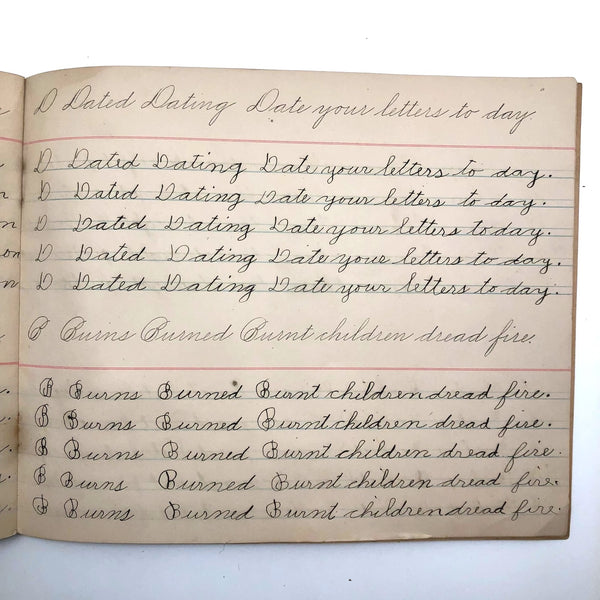 D Dated Dating Date your letters to day.
D Dated Dating Date your letters to day.
D Dated Dating Date your letters to day.
D Dated Dating Date your letters to day.
D Dated Dating Date your letters to day.
D Dated Dating Date your letters to day.
B Burns Burned Burnt children dread fire.
B Burns Burned Burnt children dread fire.
B Burns Burned Burnt children dread fire.
B Burns Burned Burnt children dread fire.
B Burns Burned Burnt children dread fire.
B Burns Burned Burnt children dread fire.